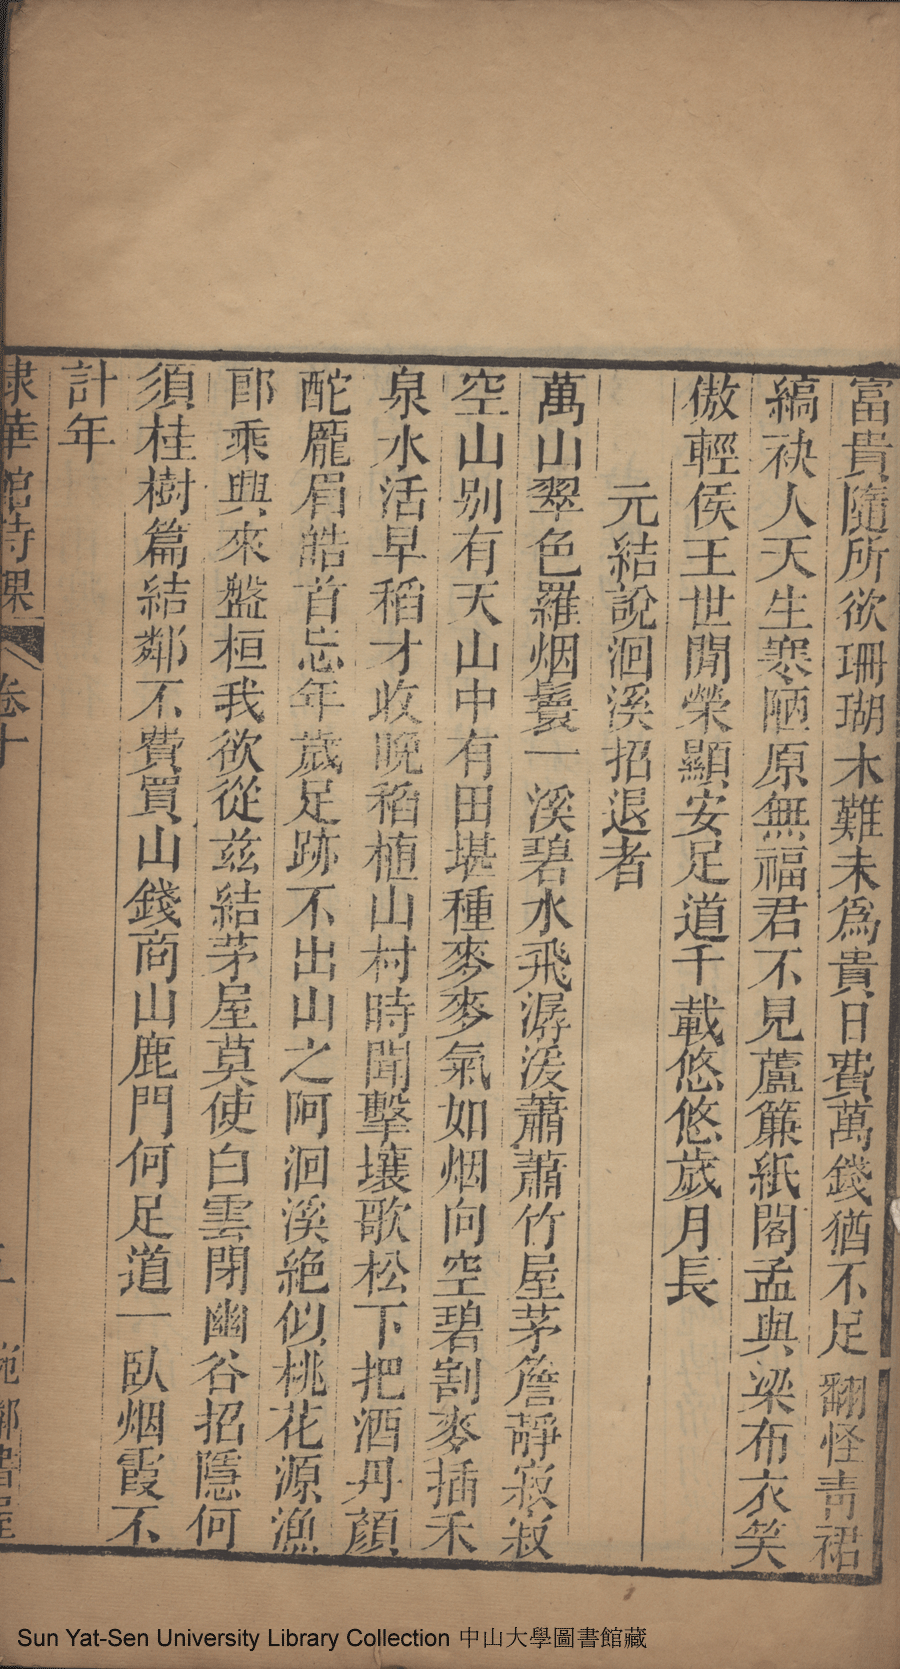 富貴隨所欲珊瑚木難未爲貴日費萬錢猶不足翻怪青裙
縞袂人天生寒陋原無福君不見蘆簾紙閣孟與梁布衣笑
傲輕侯王世閒榮顯安足道千載悠悠歲月長
元結說洄溪招退者
萬山翠色羅烟鬟一溪碧水飛潺湲蕭蕭竹屋茅簷靜寂寂
空山别有天山中有田堪種麥麥氣如烟向空碧割麥插禾
泉水活早稻才收晚稻植山村時聞擊壤歌松下把酒丹顔
酡厖眉皓首忘年歲足跡不出山之阿洄溪絶似桃花源漁
郎乘興來盤桓我欲從兹結茅屋莫使白雲閉幽谷招隱何
須桂樹篇結鄰不費買山錢商山鹿門何足道一臥烟霞不
計年
棣華館詩課 卷十
Sun Yat-Sen University Library Collection 中山大學圖書館藏